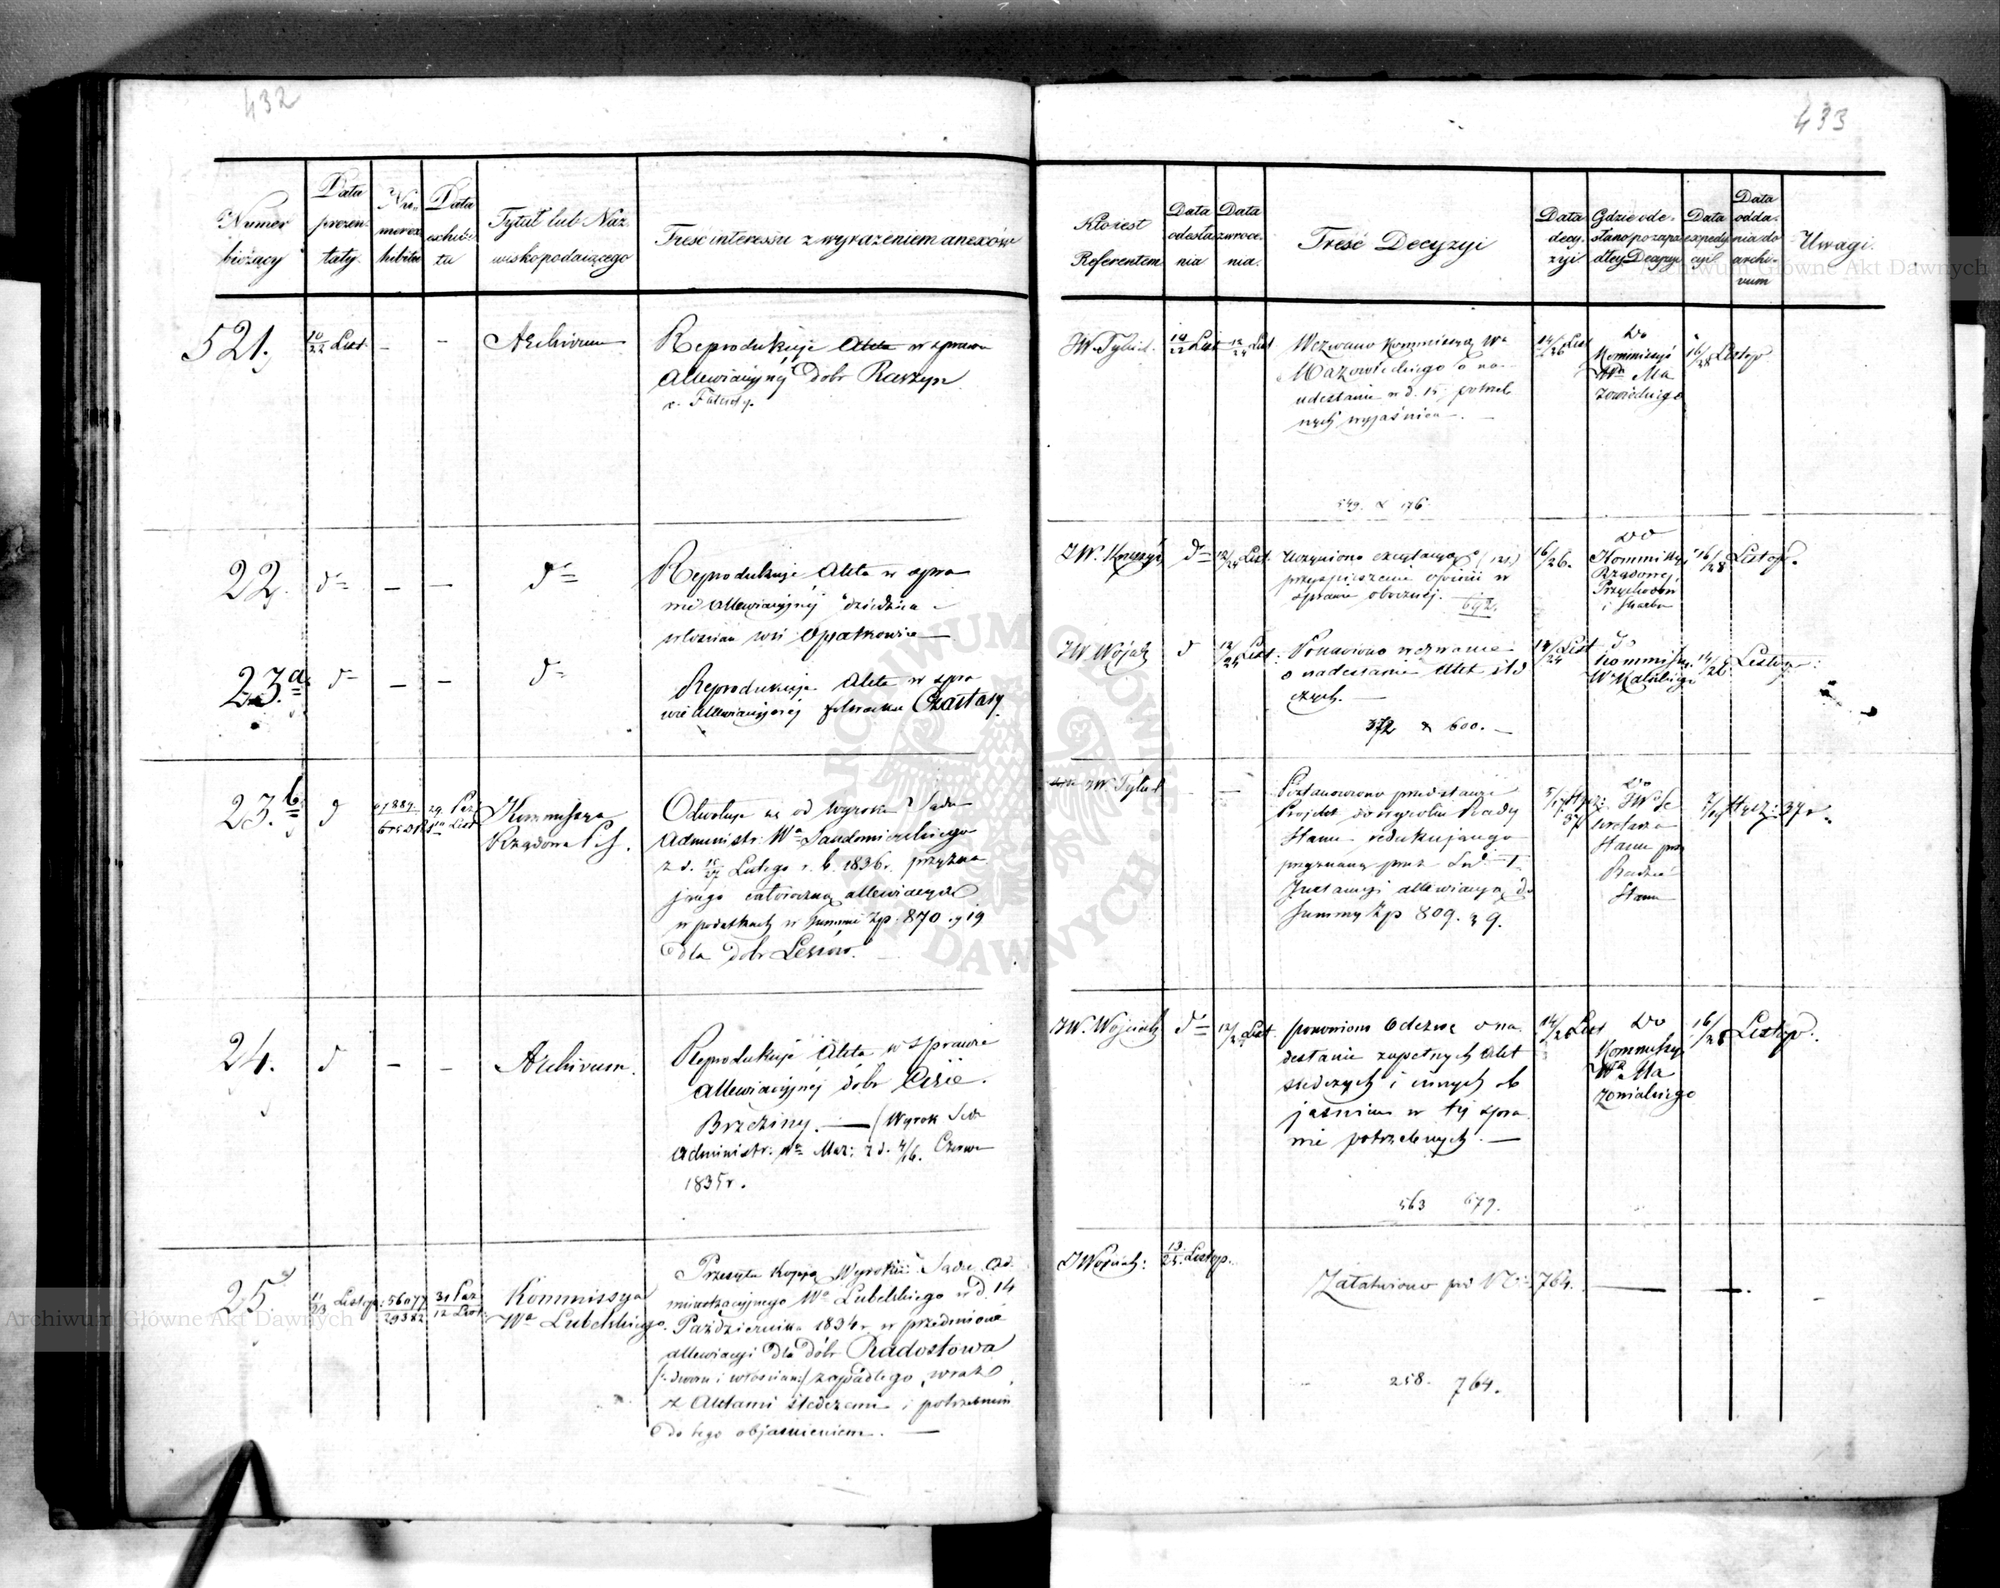 432
Numer
bieżący
Data
prezen-
taty.
Nu-
mer ex-
hibitu
Data
exhibi-
tu
Tytuł lub Naz-
wisko podaiącego
Treść interessu z wyrażeniem anexów
521.
10/22 List.
-
-
Archivum
Reprodukuje Akta w sprawie
allewiacyjnéj dóbr Raszyn
22.
d°
-
-
d°
Reprodukuje Akta w spra
wie allewiacyjnéj
włościan wsi Opatkowice
23.a
d°
-
-
d°
Reprodukuje Akta w spra
wie allewiacyjnéj folwarku Czastary
23.b
d
29. Paź
List
Kommissya
Rządowa P. S.
Odwołuje się od Wyroku Sądu
Administr: Wa Sandomierskiego
z d. 15/27 Lutego r. b. 1836 r. przyzna
jącego całoroczną allewiacyą
w podatkach w Summie Zp. 870. g 19
dla dóbr Lesiów.
24.
d
-
-
Archivum.
Reprodukuje Akta w sprawie
allewiacyjnéj dóbr Cisie.
Brzeziny. — (Wyrok Sądu
Administr. Wa Maz: z d. 4/16. Czerwca
1835 r.
25
11/23 Listop:
56077/29382
31 Paź/12 List:
Kommissya
Wa Lubelskiego.
Przesyła Kopią Wyroku Sądu Ad-
ministracyjnego Wa Lubelskiego z d. 14
Października 1834 r. w przedmiocie
allewiacyi dla dóbr Radostowa
/: dworu i włościan:/ zapadłego, wraz
z Aktami śledczemi i potrzebnem
do tego objaśnieniem. —
433
Kto iest
Referentem
Data
odesła
nia
Data
zwroce-
nia.
Treść Decyzyi
Data
decy-
zyi
Gdzie ode-
słano po zapa
dłey Decyzyi
Data
expedy
cyii
Data
odda-
nia do
archi-
vum
Uwagi.
JW. Tykiel.
10/22 List
12/24 List
Wezwano Kommissyą Wa
Mazowieckiego o na-
desłanie w d. 15 potrzeb
nych wyjaśnień —.
14/26 List
Do
Kommissyi
Wa Ma
zowieckiego
16/28 Listop
549. & 176.
d°
12/24 List.
Uczyniono
przyspieszenie opinii w
sprawie obocznéj.
692.
16/26.
Do
Kommissyi
Rządowej
Przychodów
i Skarbu
16/28 Listop.
JW. Wójcik
d
12/24 List:
Ponowiono wezwanie
o nadesłanie Akt śled
czych. —
14/24 List
Do
Kommissyi
Wa Kaliskiego
14/26 Listop:
372 & 600. —
JW. Tykiel
—
—
Postanowiono przedstawić
Projekt do wyroku Rady
Stanu redukującego
przyznaną przez Sąd I
Instancyi allewiacyą do
Summy Zp 809. g 9.
Do
JW Se
kretarza
Stanu przy
Radzie
Stanu
Stycz: 37 r.
JW. Wojcicki
d°
12/24 List
ponowiono Odezwę o na
desłanie zupełnych Akt
śledczych i innych ob
jaśnień w téj spra
wie potrzebnych. —
14/26 List
Do
Kommissyi
Wa Ma
zowieckiego
16/28 Listop.
563 679.
13/25 Listop.
Załatwiono pod No 764. —
258. 764.
Archiwum Główne Akt Dawnych
Archiwum Główne Akt Dawnych
ARCHIWUM GŁÓWNE AKT DAWNYCH